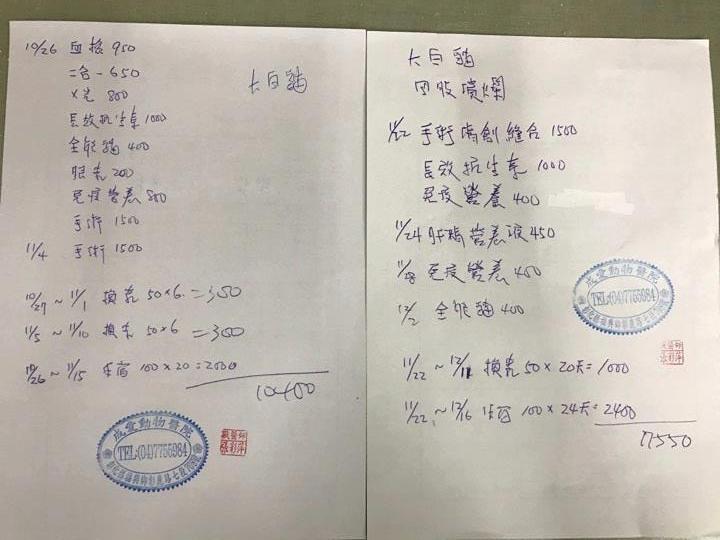 10/26 血檢 950
二合一 650
X光 800
長效抗生素 1000
全能貓 400
眼藥 200
免疫營養 800
手術 1500
11/4 手術 1500
10/27 ~ 11/1 換藥 50×6 = 300
11/5 ~ 11/10 換藥 50×6 = 300
10/26 ~ 11/15 住宿 100×20 = 2000
10400
大白貓
成童動物醫院
TEL:(04)7755984
大白貓
回收潰爛
11/22 手術 清創縫合 1500
長效抗生素 1000
免疫營養 400
11/24 肝精營養液 450
免疫營養 400
12/2 全能貓 400
11/22 ~ 12/11 換藥 50×20天 = 1000
11/22 ~ 12/16 住宿 100×24天 = 2400
7550
TEL:(04)7755984